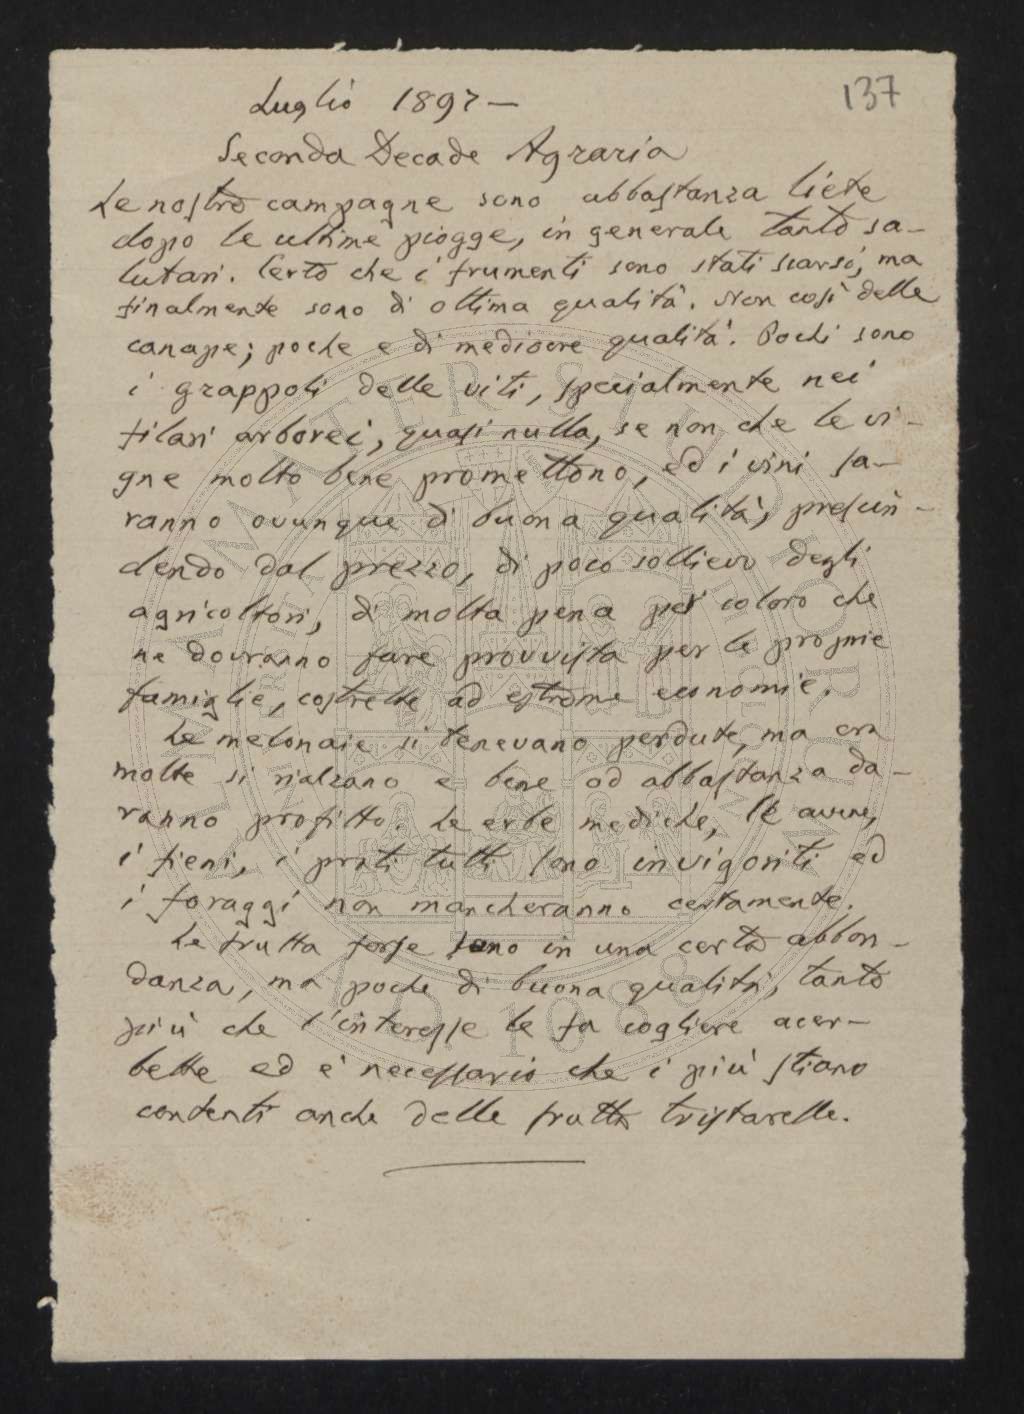 137
Luglio 1897 —
Seconda Decade Agraria
Le nostre campagne sono abbastanza liete
dopo le ultime piogge, in generale tanto sa-
lutari. Certo che i frumenti sono stati scarsi, ma
finalmente sono di ottima qualità. Non così delle
canape; poche e di mediocre qualità. Pochi sono
i grappoli delle viti, specialmente nei
filari arborei, quasi nulla, se non che le vi-
gne molto bene promettono, ed i vini sa-
ranno ovunque di buona qualità, prescin-
dendo dal prezzo, di poco sollievo degli
agricoltori, di molta pena per coloro che
ne dovranno fare provvista per le proprie
famiglie, costrette ad estreme economie.
Le melonaie si tenevano perdute, ma ora
molte si rialzano e bene od abbastanza da-
ranno profitto. Le erbe mediche, le avene,
i fieni, i prati tutti sono invigoriti ed
i foraggi non mancheranno certamente.
Le frutta forse sono in una certa abbon-
danza, ma poche di buona qualità, tanto
più che l'interesse le fa cogliere acer-
bette ed è necessario che i più stiano
contenti anche delle frutta tristarelle.
ALMA MATER STUDIORUM
A.D. 1088